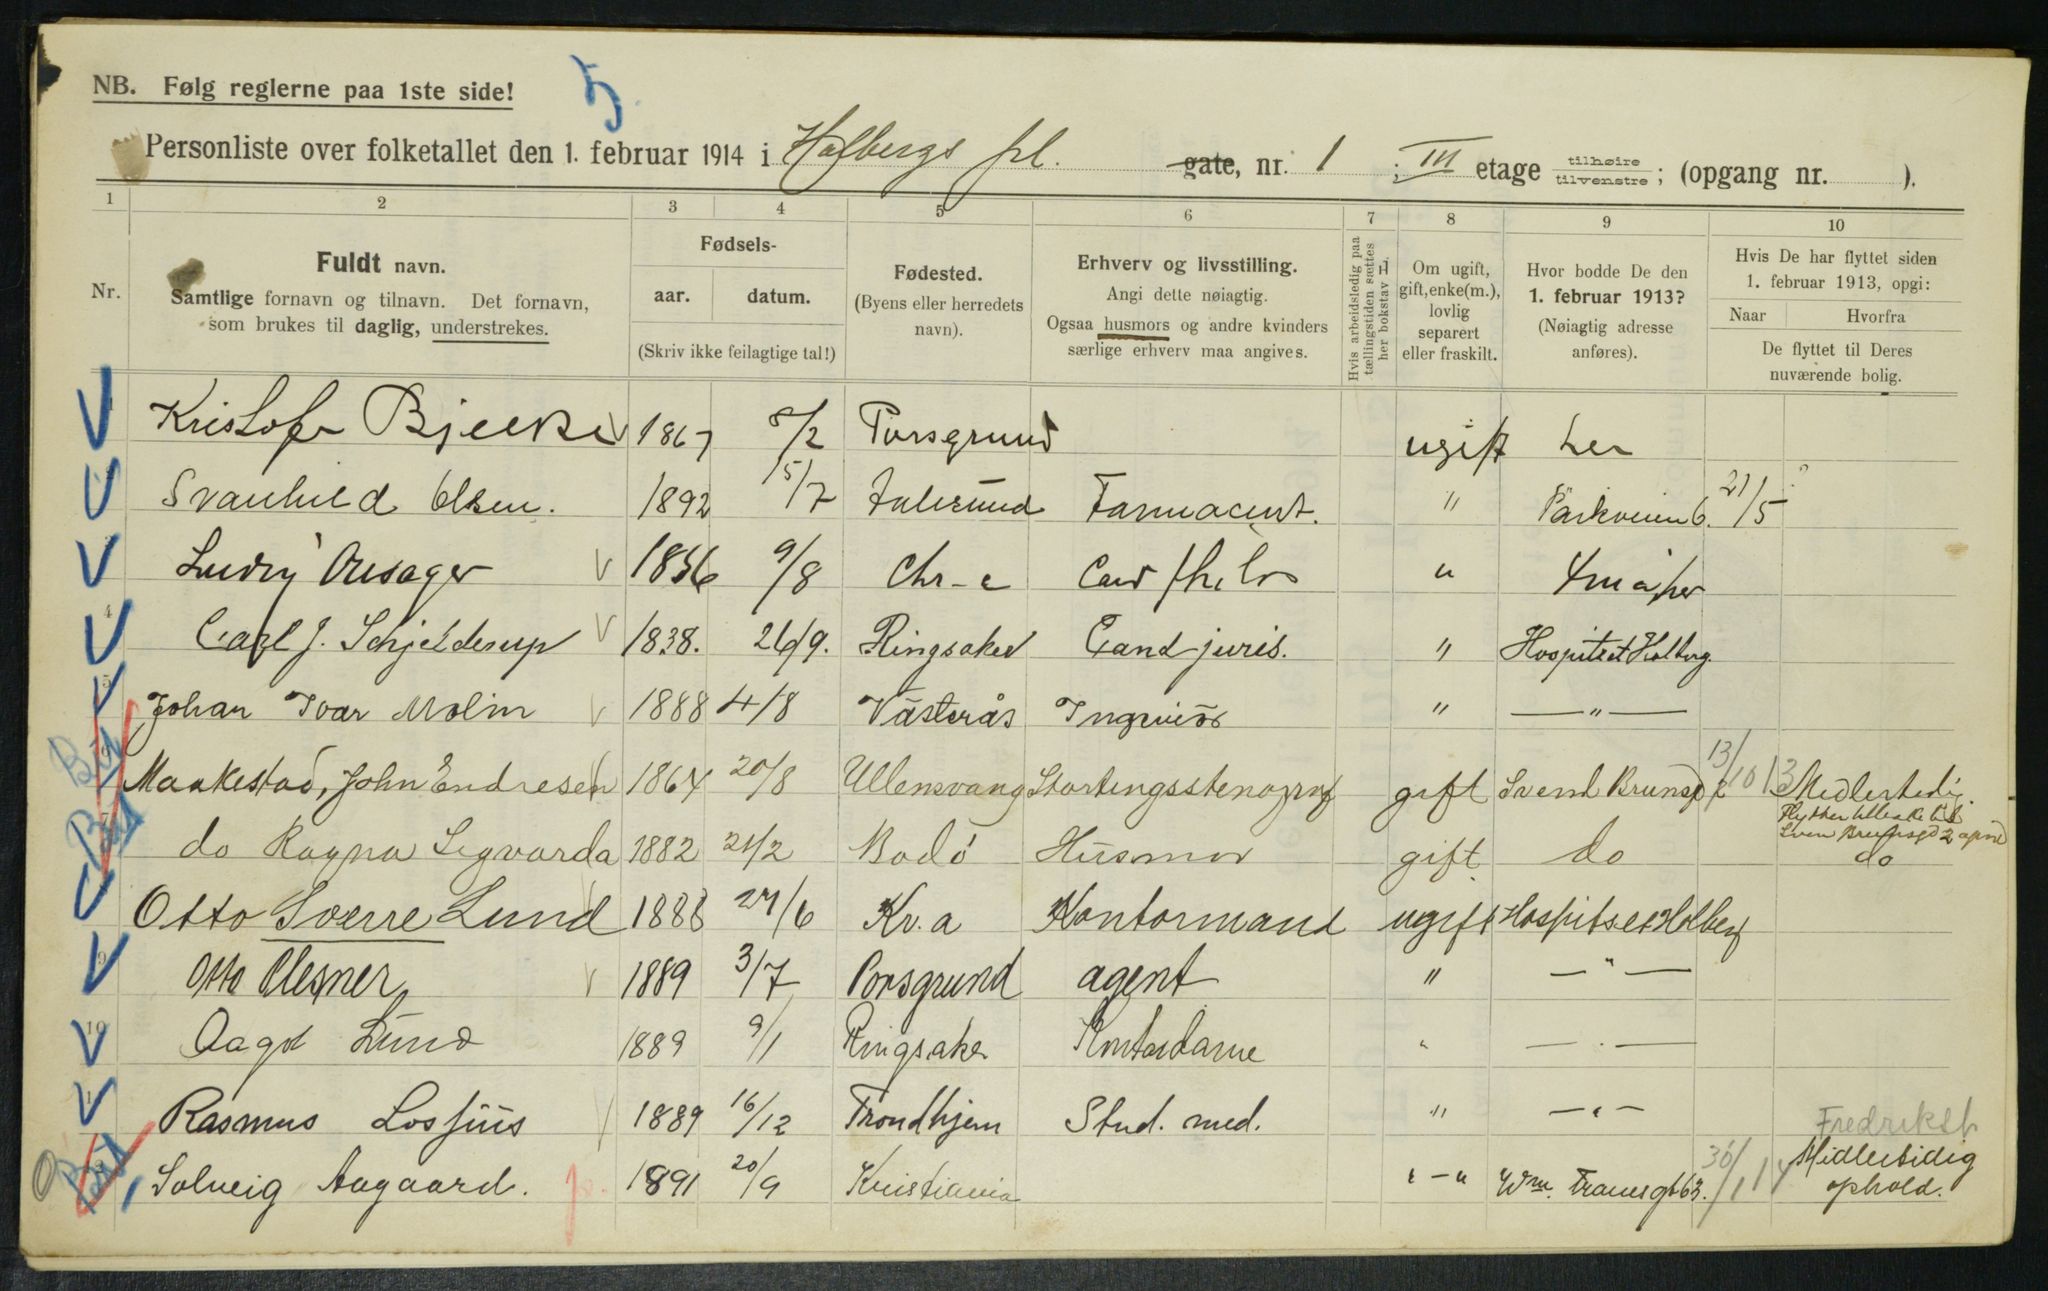 NB. Følg reglerne paa 1ste side!
5
Personliste over folketallet den 1. februar 1914 i Holbergs pl. gate, nr. 1 ; III etage tilhøire tilvenstre ; (opgang nr. ).
1 2 3 4 5 6 7 8 9 10
Nr.
Fuldt navn.
Samtlige fornavn og tilnavn. Det fornavn,
som brukes til daglig, understrekes.
Fødsels-
aar. datum.
(Skriv ikke feilagtige tal!)
Fødested.
(Byens eller herredets
navn).
Erhverv og livsstilling.
Angi dette nøiagtig.
Ogsaa husmors og andre kvinders
særlige erhverv maa angives.
Hvis arbeidsledig paa
tællingstiden sættes
her bokstav L.
Om ugift,
gift, enke(m.),
lovlig
separert
eller fraskilt.
Hvor bodde De den
1. februar 1913?
(Nøiagtig adresse
anføres).
Hvis De har flyttet siden
1. februar 1913, opgi:
Naar Hvorfra
De flyttet til Deres
nuværende bolig.
Kristofer 1867 8/2 Porsgrund ugift her
Svanhild Olsen. 1892 15/7 Farmaceut. " Parkveien 6. 21/5
Ludvig 9/8 Chr-a Cand philos "
4 Carl J. Schjelderup 1838. 26/9. Ringsaker Cand juris. " Hospitset Holberg.
5 Johan Ivar Molin 1888 4/8 Västerås Ingeniör " — " —
6 Maakestad, John Endresen 1864 20/8 Ullensvang Stortingsstenograf gift Svend Brunsg 2 13/10 13 Midlertidig.
Flytter tilbake til
Sven Brunsgd 2 april
7 do Ragna Sigvarda 1882 21/2 Bodö Husmor gift do do
Otto Sverre Lund 1888 27/6 Kr.a Kontormand ugift Hospitset Holberg
9 Otto 1889 3/7 Porsgrund agent " — " —
10 Aagot Lund 1889 9/1 Ringsaker Kontordame " — " —
11 Rasmus Lossius 1889 16/12 Trondhjem Stud. med. " — " —
Fredrikst
Solveig Aagaard. 1891 20/9 Kristiania " — " 30/1 14 Midlertidig
ophold.